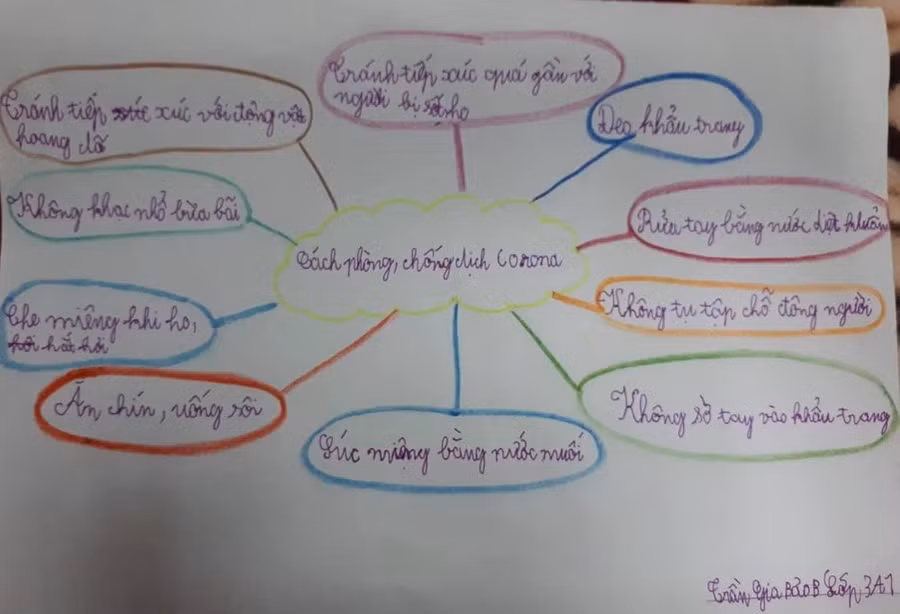 Tránh tiếp xúc quá gần với
người bị sốt, ho
Tránh tiếp xúc với động vật
hoang dã
Đeo khẩu trang
Không khạc nhổ bừa bãi
Rửa tay bằng nước diệt khuẩn
Cách phòng, chống dịch Corona
Che miệng khi ho,
hắt hơi
Không tụ tập chỗ đông người
Ăn chín, uống sôi
Không sờ tay vào khẩu trang
Súc miệng bằng nước muối
Trần Gia Bảo B Lớp 3A1